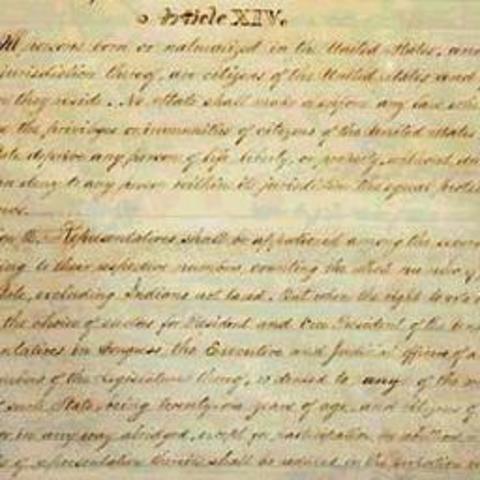 Article XIV.
All persons born or naturalized in the United States, and
jurisdiction thereof, are citizens of the United States and
they reside. No State shall make or enforce any law
the privileges or immunities of citizens of the United States
deprive any person of life, liberty, or property, without
deny to any person within its jurisdiction the equal

2. Representatives shall be apportioned among the
to their respective numbers, counting the whole number of
State, excluding Indians not taxed. But when the right to vote
the choice of electors for President and Vice President of the
in Congress, the Executive and Judicial officers of a
of the Legislature thereof, is denied to any of the
of such State, being twenty-one years of age, and citizens of
or in any way abridged, except for participation in
of representation therein shall be reduced in the proportion